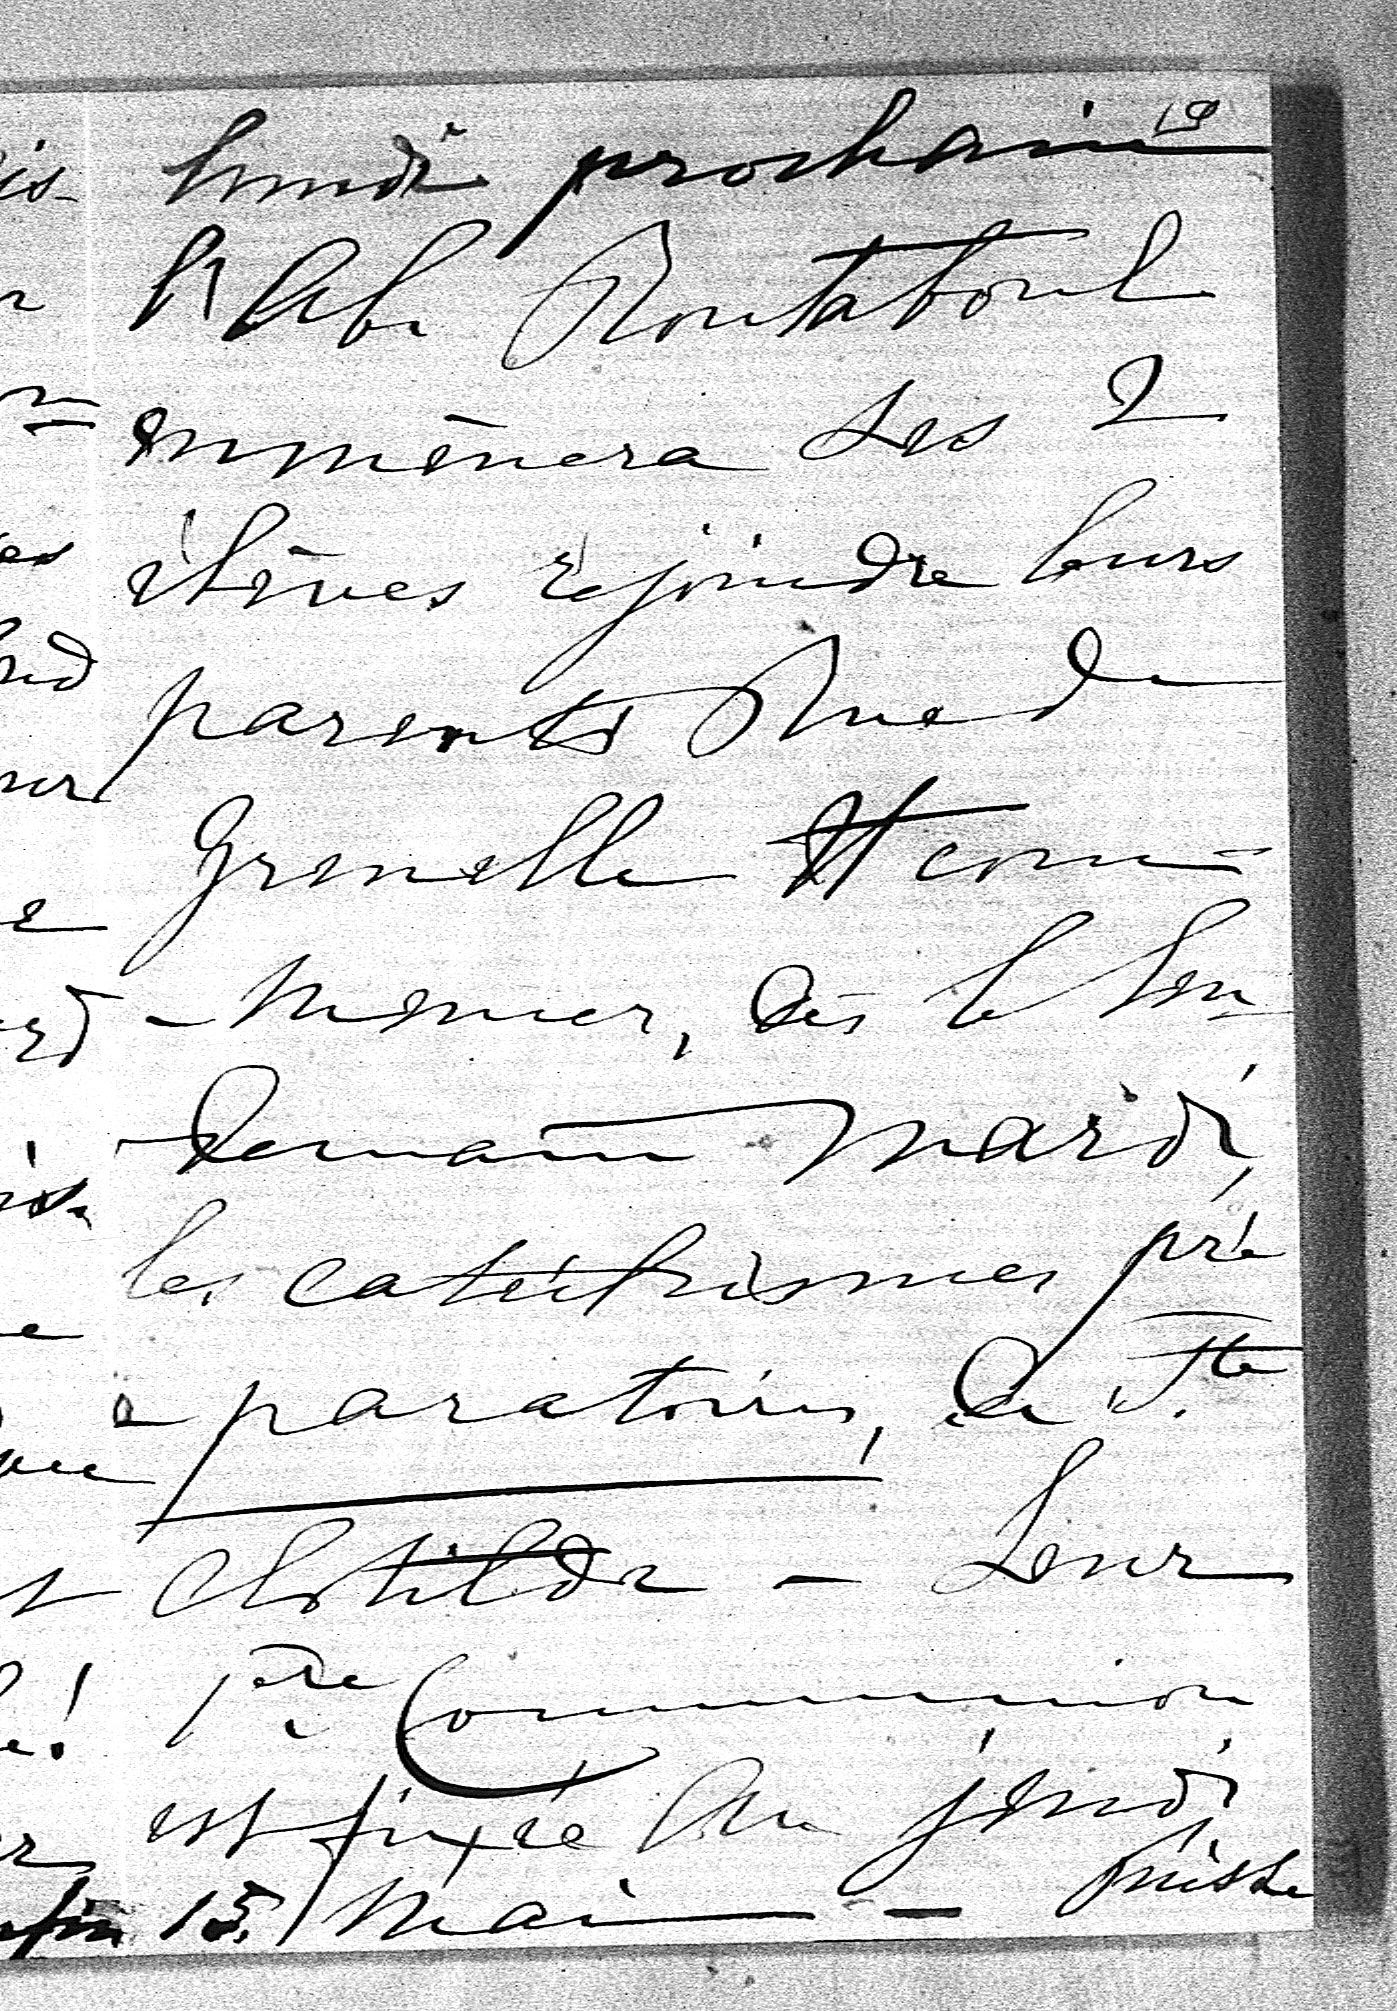 19
lundi prochain
l'Abé Routaboul
emmènera ses 2
élèves rejoindre leurs
parents Rue de
Grenelle et com-
-mencer, dès le len-
demain mardi,
les catéchismes pré
-paratoires, de Ste
Clotilde - Leur
1ère Communion
est fixée au jeudi
15 Mai - puisse